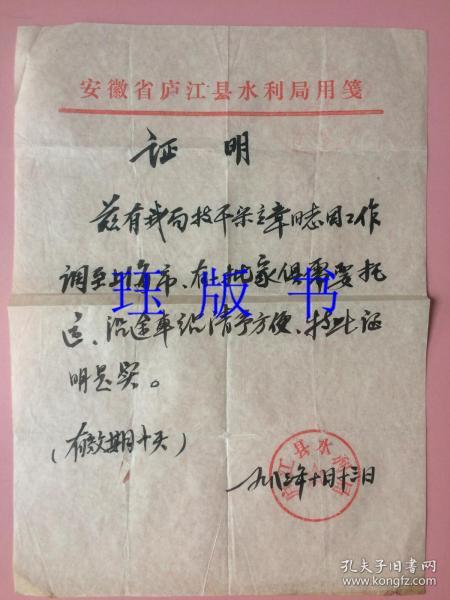 安徽省庐江县水利局用笺
证 明
兹有我局技干梁立章同志因工作
调至上海市、有一批家俱需要托
运、沿途车站请予方便、特此证
明是实。
(有效期十天)
一九八三年十月十三日
庐江县水利局
珏版书
孔夫子旧书网
www.kongfz.com